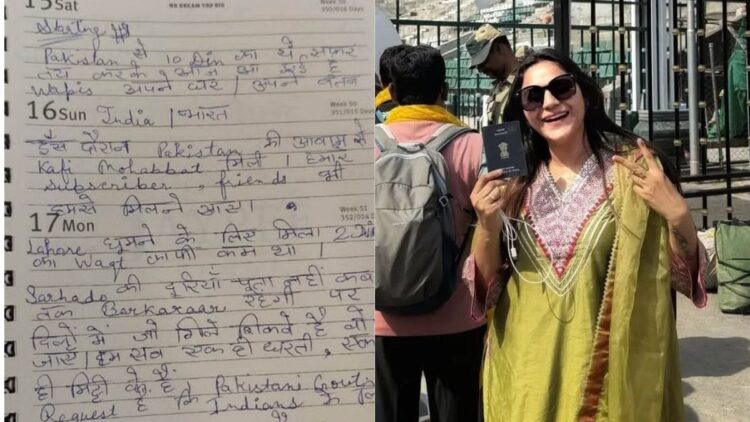 15 Sat
Week 50
350/016 Days
Pakistan से 10 Din का ये सफर
तय करके आज आ है
Wapis अपने घर । अपने वतन
16 Sun India / भारत
Week 50
351/015 Days
इस दौरान Pakistan की आवाम से
Kafi Mohabbat मिली । हमारे
subscriber, friends भी
हमसे मिलने आए ।
17 Mon
Week 51
Lahore घुमने के लिए मिला 2
का Waqt काफी कम था ।
Sarhado की दूरियाँ पता नहीं कब
तक Barkaraar रहेंगी पर
दिलों में जो गिले शिकवे है वो
जाए । हम सब एक ही धरती, एक
ही मिट्टी के हैं
Pakistani Govt
Request है कि Indians के